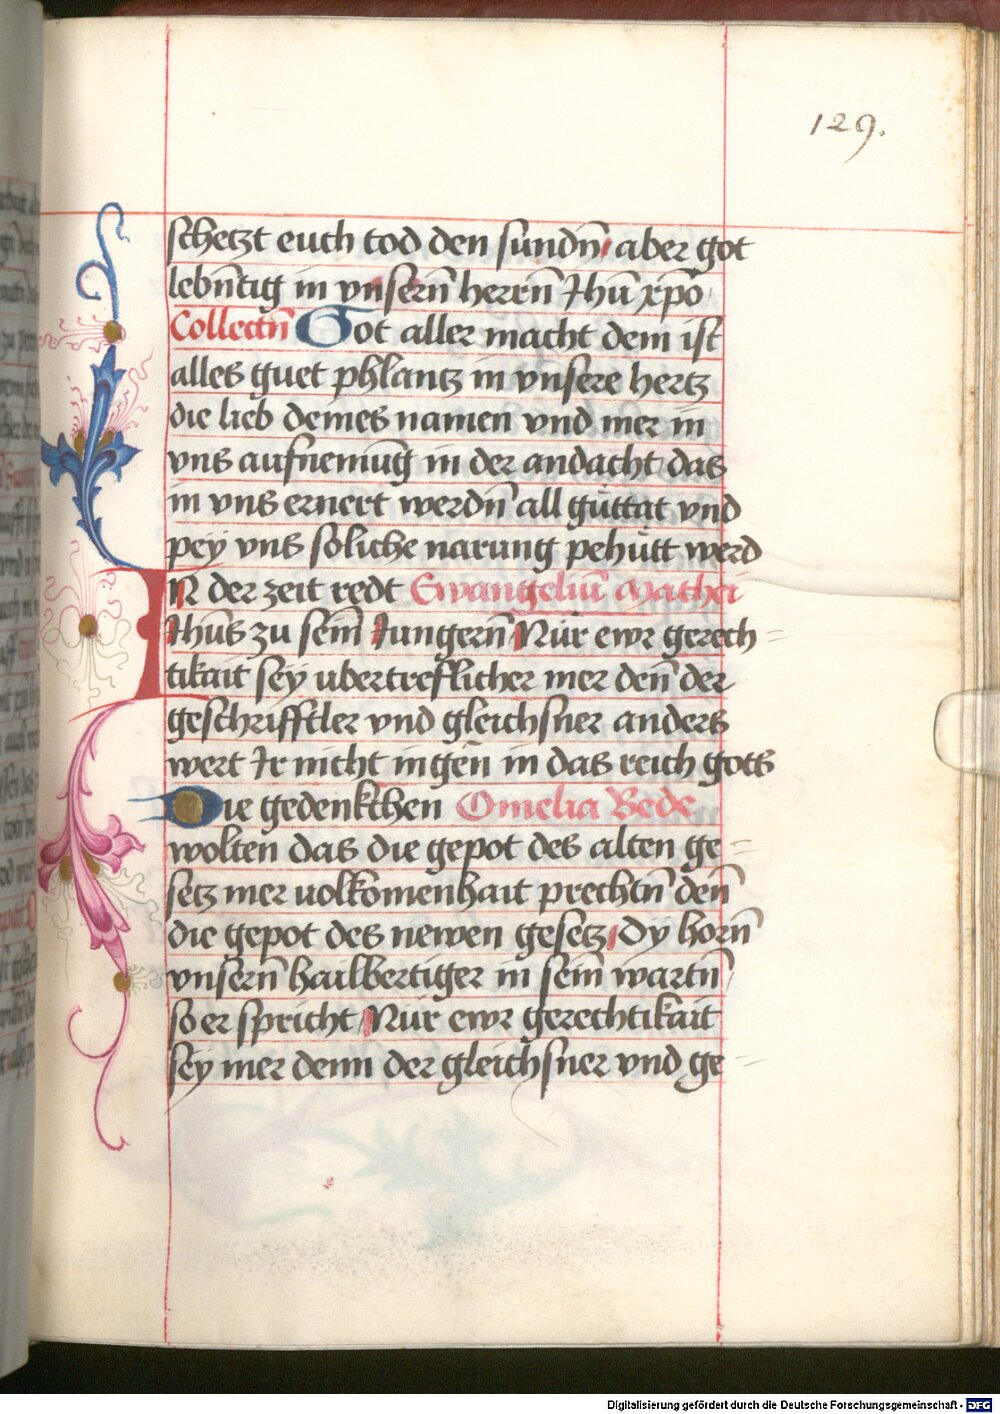 129.
schetzt euch tod den sundn̄ aber got
lebn̄tig in vnsern̄ herrēn Jhū xp̄o
Collectn̄ Got aller macht dem ist
alles guet phlantz in vnsere hertz
die lieb deines namen vnd mer in
vns aufnemūg in der andacht das
in vns ernert werdn̄ all gùttat vnd
pey vns soliche narung pehùtt werd
IN der zeit redt Ewangeliū Mathei
Jhūs zu sein̄ Jungern̄ Nùr ewr gerech=
tikait sey ubertreflicher mer den̄ der
geschrifftler vnd gleichsner anders
wert Ir nicht ingēn in das reich gots
Die gedenkchen Omelia Bede
wolten das die gepot des alten ge=
setz mer uolkomenhait prechtn̄ den̄
die gepot des newen gesetz Dy horn̄
vnsern̄ hailbertiger in sein̄ wartn̄
so er spricht Nùr ewr gerechtikait
sey mer denn der gleichsner vnd ge=
Digitalisierung gefördert durch die Deutsche Forschungsgemeinschaft - DFG